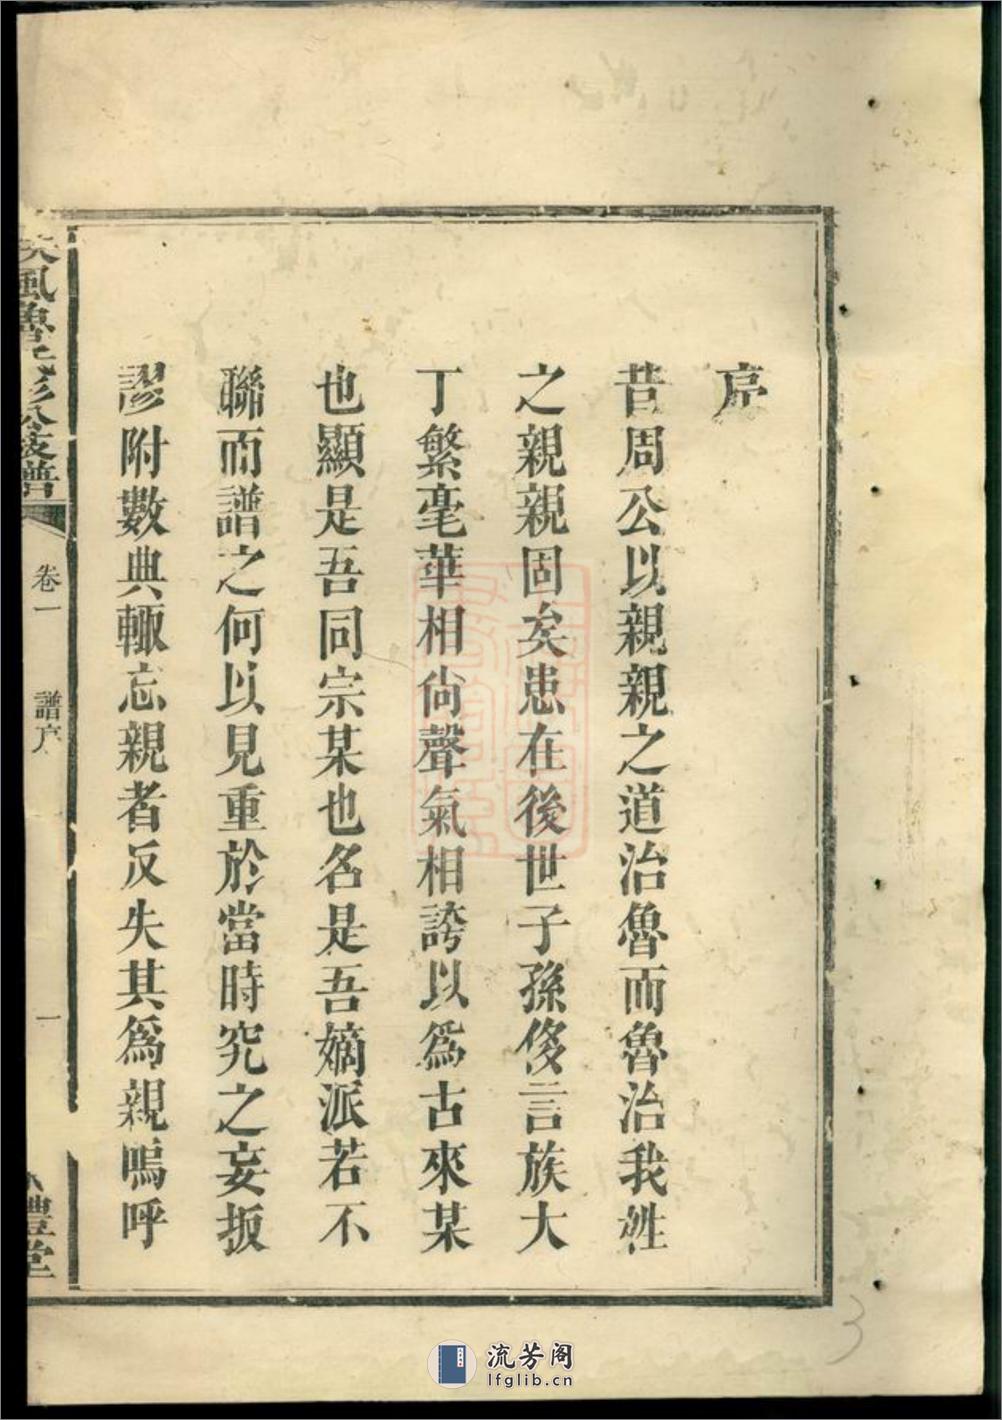 序
昔周公以親親之道治魯而魯治我姓
之親親固矣患在後世子孫侈言族大
丁繁毫華相尙聲氣相誇以爲古來某
也顯是吾同宗某也名是吾嫡派若不
聯而譜之何以見重於當時究之妄扳
謬附數典輒忘親者反失其爲親嗚呼
風魯氏彥公支譜
卷一
譜序
一
禮堂
3
流芳阁
lfglib.cn